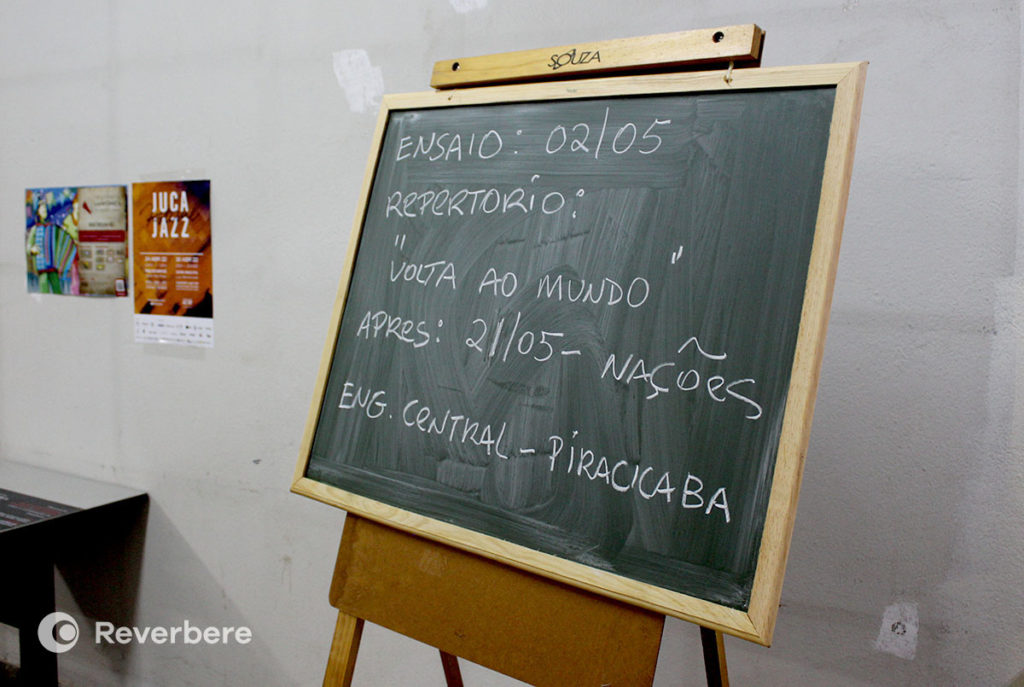 SOUZA
ENSAIO: 02/05
REPERTÓRIO:
"VOLTA AO MUNDO"
APRES: 21/05 - NAÇÕES
ENG. CENTRAL - PIRACICABA
JUCA
JAZZ
Reverbere